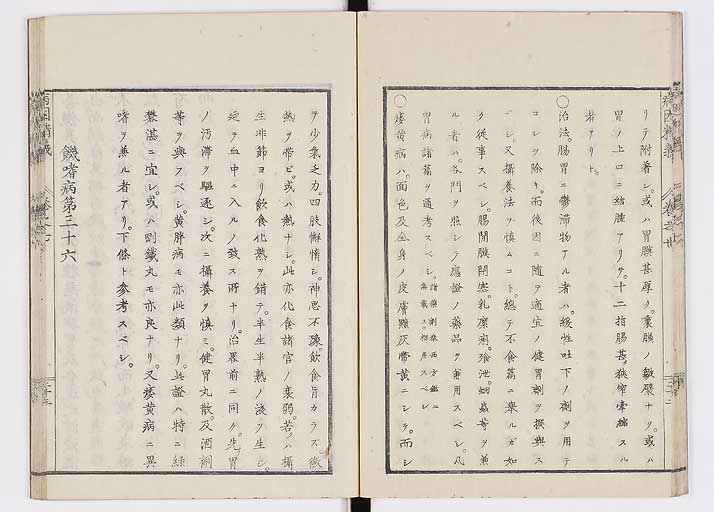 リテ附着シ。或ハ胃膜甚厚ク。裏膜ノ皺襞ナク。或ハ
胃ノ上口ニ結腫アリテ。十二指腸甚。狹窄牽縮スル
者アリト。
〇治法。腸胃ニ鬱滯物アル者ハ。緩性吐下ノ劑ヲ用テ
コレヲ除キ。而後因ニ隨ヲ適宜ノ健胃劑ヲ撰與ス
ベシ。又攝養法ヲ慎ムコト。總テ不食篇ニ舉ルガ如
ク從事スベシ。腸間膜閉塞。乳糜痢。飧泄。蛔蟲等ヲ兼
ル者ハ。各門ヲ照シテ應證ノ藥品ヲ兼用スベシ。凡
胃病諸篇ヲ通考スベシ。諸藥劑 西方鑑ニ
集載ス。撰用スベシ
〇痿黄病ハ。面色及全身ノ皮膚黯灰帶黄ニシテ。而シ
テ少氣乏力。四肢懈惰シ。神思不豫。飲食旨カラズ微
熱ヲ帶ビ。或ハ熱ナシ。此亦化食諸官ノ衰弱。若ハ攝
生非節ヨリ飲食化熟ヲ錯テ。半生半熟ノ淺ヲ生シ。
延テ血中ニ入ルノ致ス所ナリ。治畧前ニ同ク。先胃
ノ汚滯ヲ驅逐シ。次ニ攝養ヲ慎ミ。健胃丸散。及酒劑
等ヲ與スベシ。黄胖病モ亦此類ナリ。此證ハ特ニ緑
礬湛ニ宜シ。或ハ剛鐵丸モ亦良ナリ。又痿黄病ニ異
嗜ヲ兼ル者アリ。下條ト參考スベシ。
饑嗜病第三十六